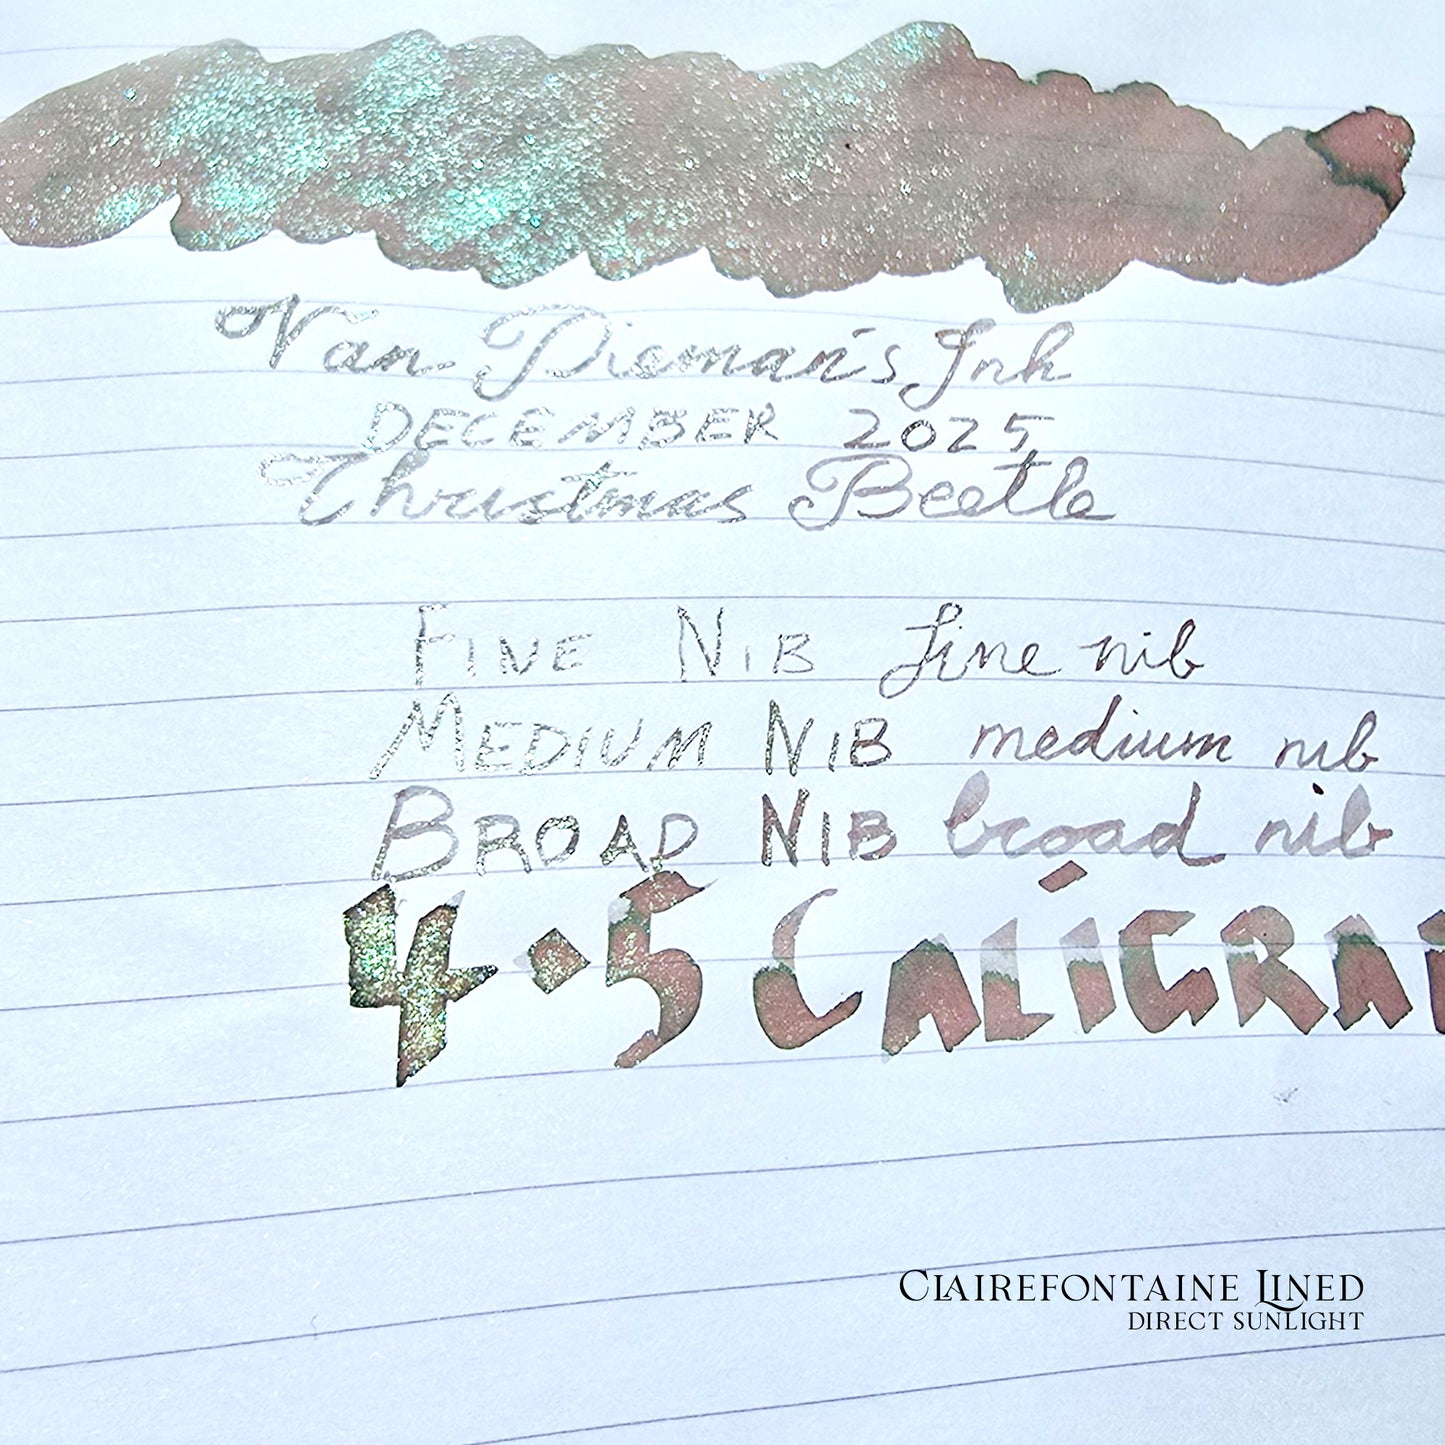 Van Dieman's Ink
DECEMBER 2025
Christmas Beetle
FINE NIB fine nib
MEDIUM NIB medium nib
BROAD NIB broad nib
4.5 CALIGRA
CLAIREFONTAINE LINED
DIRECT SUNLIGHT